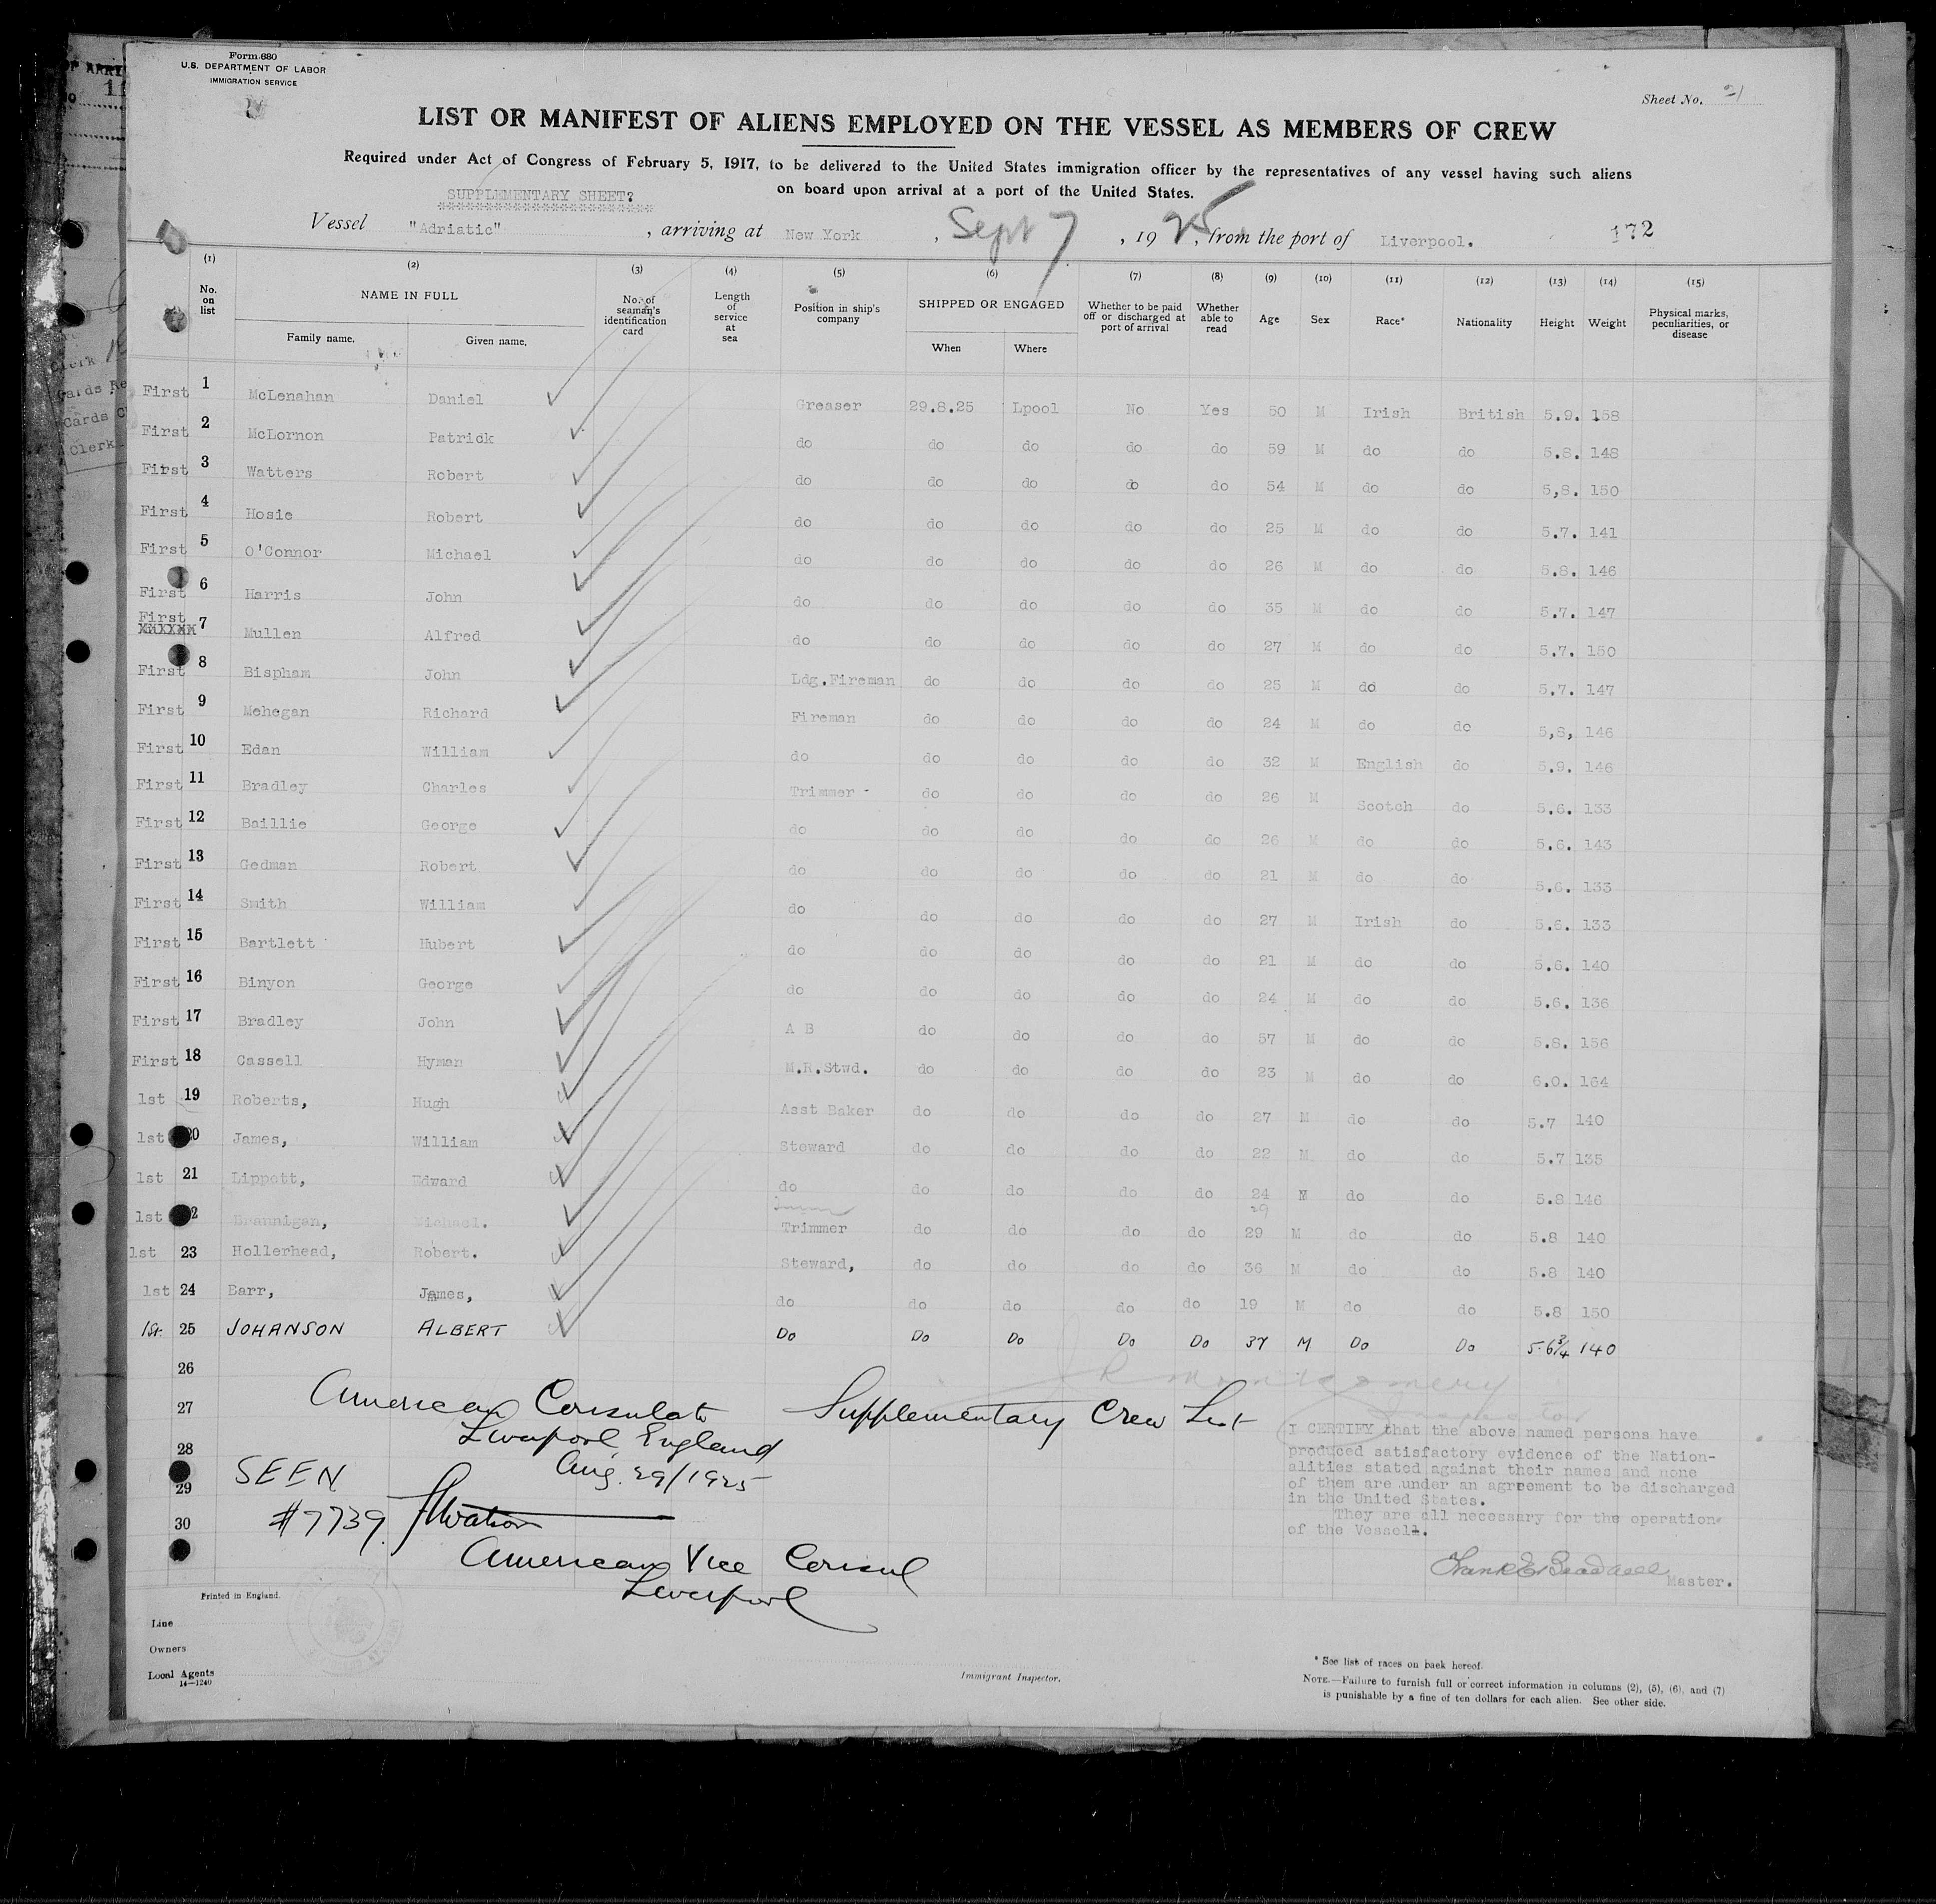 Form 680
U.S. DEPARTMENT OF LABOR
IMMIGRATION SERVICE
Sheet No. 21
LIST OR MANIFEST OF ALIENS EMPLOYED ON THE VESSEL AS MEMBERS OF CREW
Required under Act of Congress of February 5, 1917, to be delivered to the United States immigration officer by the representatives of any vessel having such aliens
on board upon arrival at a port of the United States.
SUPPLEMENTARY SHEET?
Vessel "Adriatic", arriving at New York, Sept 7, 1925, from the port of Liverpool. 172
(1) (2) (3) (4) (5) (6) (7) (8) (9) (10) (11) (12) (13) (14) (15)
No. on list NAME IN FULL Family name. Given name. No. of seaman's identification card Length of service at sea Position in ship's company SHIPPED OR ENGAGED When Where Whether to be paid off or discharged at port of arrival Whether able to read Age Sex Race* Nationality Height Weight Physical marks, peculiarities, or disease
First 1 McLenahan Daniel Greaser 29.8.25 Lpool No Yes 50 M Irish British 5.9. 158
First 2 McLornon Patrick do do do do do 59 M do do 5.8. 148
First 3 Watters Robert do do do do do 54 M do do 5,8. 150
First 4 Hosie Robert do do do do do 25 M do do 5.7. 141
First 5 O'Connor Michael do do do do do 26 M do do 5.8. 146
First 6 Harris John do do do do do 35 M do do 5.7. 147
First 7 Mullen Alfred do do do do do 27 M do do 5.7. 150
First 8 Bispham John Ldg.Fireman do do do do 25 M do do 5.7. 147
First 9 Mehegan Richard Fireman do do do do 24 M do do 5,8, 146
First 10 Edan William do do do do do 32 M English do 5.9. 146
First 11 Bradley Charles Trimmer - do do do do 26 M Scotch do 5.6. 133
First 12 Baillie George do do do do do 26 M do do 5.6. 143
First 13 Gedman Robert do do do do do 21 M do do 5.6. 133
First 14 Smith William do do do do do 27 M Irish do 5.6. 133
First 15 Bartlett Hubert do do do do do 21 M do do 5.6. 140
First 16 Binyon George do do do do do 24 M do do 5.6. 136
First 17 Bradley John A B do do do do 57 M do do 5.8. 156
First 18 Cassell Hyman M.R.Stwd. do do do do 23 M do do 6.0. 164
1st 19 Roberts, Hugh Asst Baker do do do do 27 M do do 5.7 140
1st 20 James, William Steward do do do do 22 M do do 5.7 135
1st 21 Lippett, Edward do do do do do 24 M do do 5.8 146
29
1st 22 Brannigan, Michael. Trimmer do do do do 29 M do do 5.8 140
1st 23 Hollerhead, Robert. Steward, do do do do 36 M do do 5.8 140
1st 24 Barr, James, do do do do do 19 M do do 5.8 150
1st 25 JOHANSON ALBERT Do Do Do Do Do 37 M Do Do 5.6¾ 140
26
J R Montgomery
Inspector
27
American Consulate Supplementary Crew List
Liverpool England
28
Aug. 29/1925
SEEN
29
#7739. 
30
American Vice Consul
Liverpool
I CERTIFY that the above named persons have
produced satisfactory evidence of the Nation-
alities stated against their names and none
of them are under an agreement to be discharged
in the United States.
They are all necessary for the operation
of the Vessel.
Master.
Printed in England.
Line
Owners
Local Agents
14—1240
Immigrant Inspector.
* See list of races on back hereof.
NOTE.—Failure to furnish full or correct information in columns (2), (5), (6), and (7)
is punishable by a fine of ten dollars for each alien. See other side.